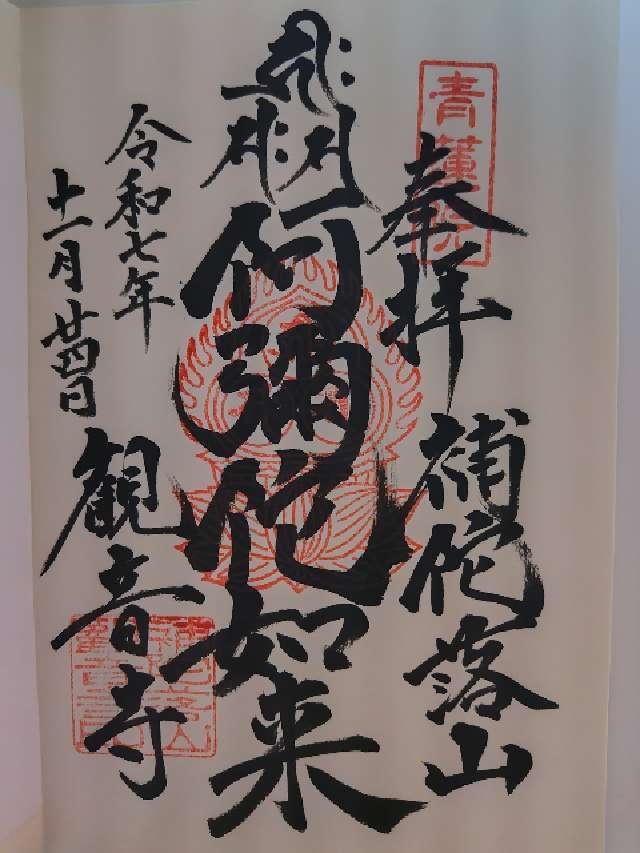 青蓮院
奉拝
補陀落山
阿彌陀如来
令和七年
十一月廿四日
観音寺